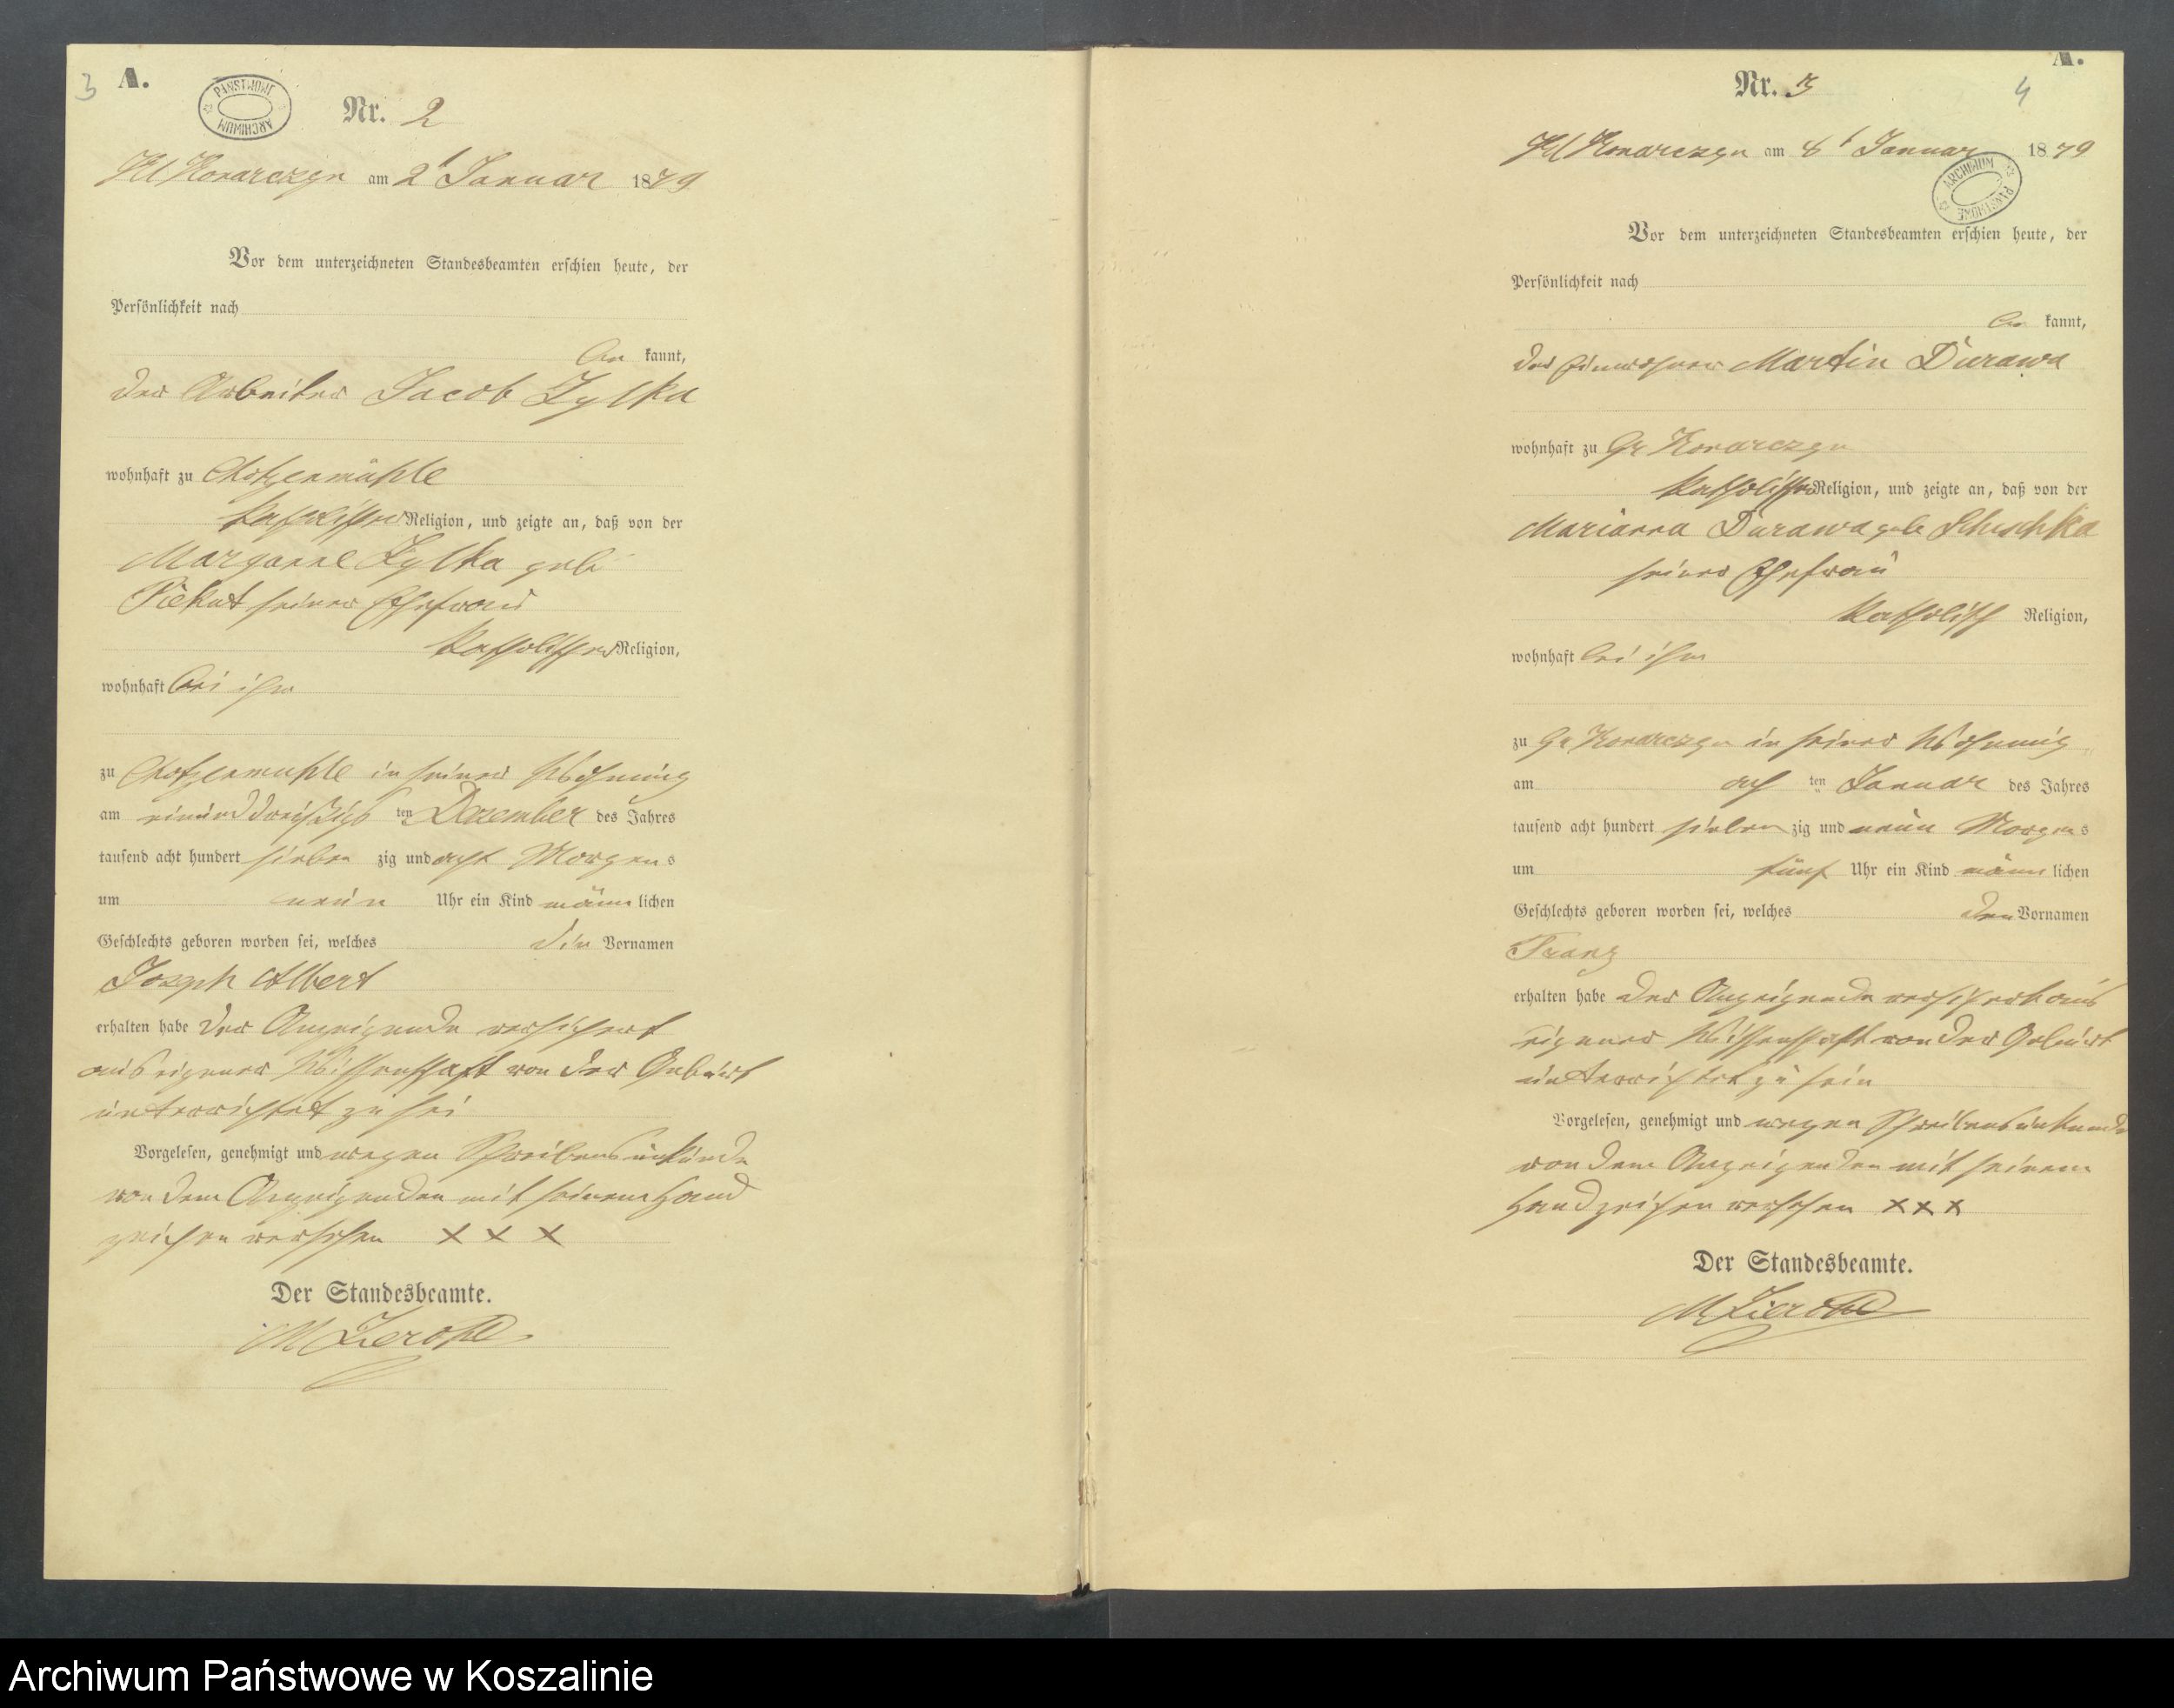 3 A.
PAŃSTWOWE ARCHIWUM
Nr. 2
Kl Konarczyn am 2t Januar 1879
Vor dem unterzeichneten Standesbeamten erschien heute, der
Persönlichkeit nach
be kannt,
der Arbeiter Jacob Zylka
wohnhaft zu Chotzenmühle
katholischer Religion, und zeigte an, daß von der
Zylka geb
Piekut seiner Ehefrau
katholischer Religion,
wohnhaft bei ihm
zu Chotzenmuhle in seiner Wohnung
am einunddreißigs ten Dezember des Jahres
tausend acht hundert sieben zig und acht Morgens
um neun Uhr ein Kind männ lichen
Geschlechts geboren worden sei, welches die Vornamen
Joseph Albert
erhalten habe Der Anzeigende versichert
aus eigener Wissenschaft von der Geburt
unterrichtet zu sei
Vorgelesen, genehmigt und wegen Schreibensunkunde
von dem Anzeigenden mit seinem Hand
zeichen versehen X X X
Der Standesbeamte.
A.
Nr. 3 4
Kl Konarczyn am 8t Januar 1879
ARCHIWUM PAŃSTWOWE
Vor dem unterzeichneten Standesbeamten erschien heute, der
Persönlichkeit nach
be kannt,
der Einwohner Martin Durawa
wohnhaft zu Gr Konarczyn
katholischer Religion, und zeigte an, daß von der
Marianna Durawa geb
seiner Ehefrau
katholisch Religion,
wohnhaft bei ihm
zu Gr Konarczyn in seiner Wohnung
am ach ten Januar des Jahres
tausend acht hundert sieben zig und neun Morgens
um fünf Uhr ein Kind männ lichen
Geschlechts geboren worden sei, welches den Vornamen
Franz
erhalten habe Der Anzeigende versichert aus
eigener Wissenschaft von der Geburt
unterrichtet zu sein
Vorgelesen, genehmigt und wegen Schreibensunkunde
von dem Anzeigenden mit seinem
Handzeichen versehen X X X
Der Standesbeamte.
Archiwum Państwowe w Koszalinie